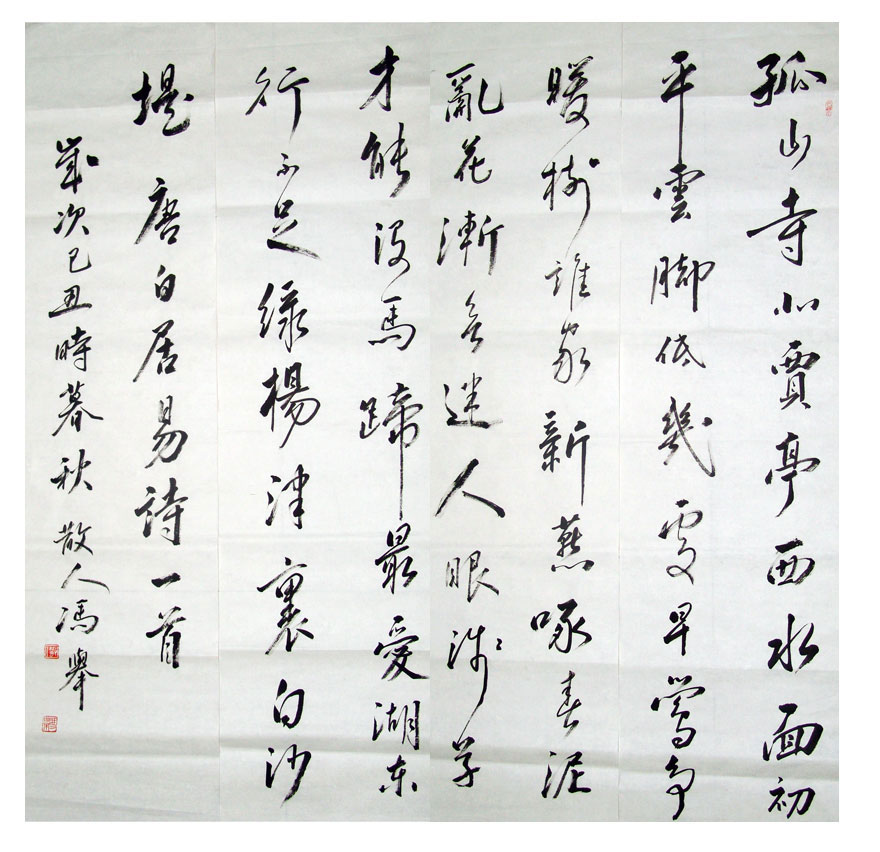 孤山寺北賈亭西水面初
平雲脚低幾處早鶯争
暖樹誰家新燕啄春泥
亂花漸欲迷人眼淺〻草
才能没馬蹄最愛湖东
行不足綠楊津裏白沙
堤 唐白居易詩一首
歲次己丑時暮秋散人馮舉